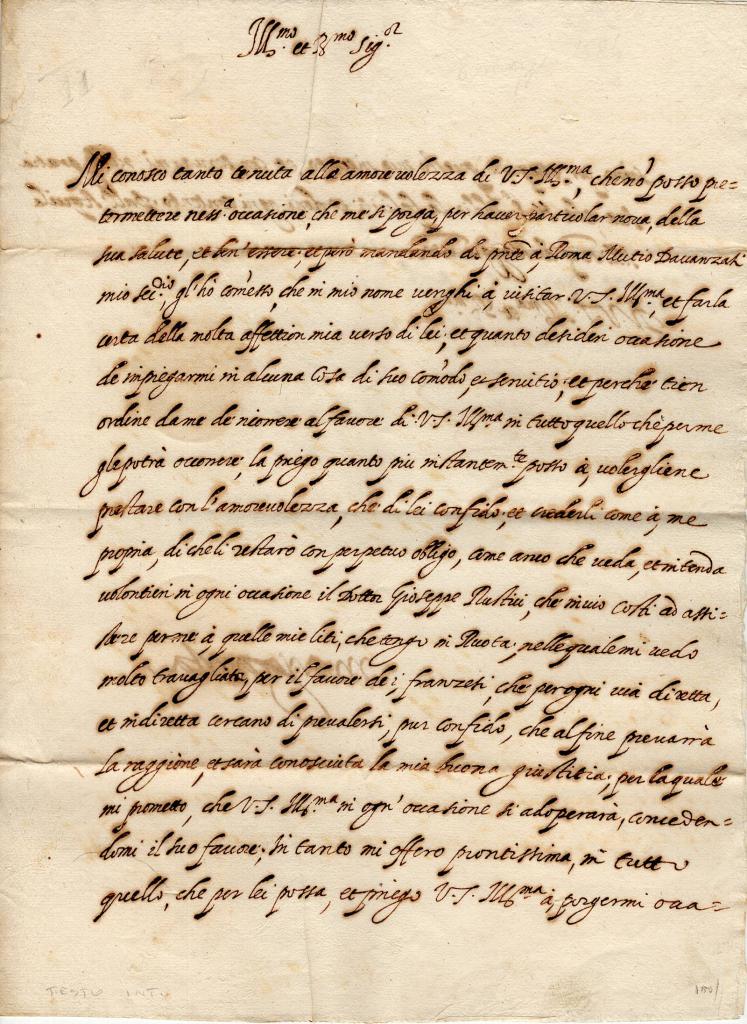 Ill.mo et R.mo Sig.or
Mi conosco tanto tenuta alla amorevolezza di V.S. Ill.ma, che nō posso pre=
termettere ness.a occasione, che me si porga, per haver particolar nova, della
sua salute, et ben' essere, et però mandando di p̄nte à Roma Mutio Davanzati
mio sec.rio, gl'hò com̄esso, che in mio nome venghi à visitar V.S. Ill.ma, et farla
certa della molta affettion mia verso di lei, et quanto desideri occasione
de impiegarmi in alcuna cosa di suo com̄odo, et servitio, et perche tien
ordine da me de ricorrere al favore di V.S. Ill.ma in tutto quello che per me
gle potrà occorrere, la priego quanto più instantem.te posso à volergliene
prestare con l'amorevolezza, che di lei confido, et crederli come à me
propria, di che li restarò con perpetuo obligo, come anco che veda, et intenda
volontieri in ogni occasione il Dottor Gioseppe, che invio costì ad assi=
stere per me à quelle mie liti, che tengo in Ruota, nelle quale mi vedo
molto travagliata, per il favore de i franzesi, che per ogni via diretta,
et indiretta cercano di prevalersi, pur confido, che al fine prevarrà
la raggione, et sarà conosciuta la mia buona giustitia, per la quale
mi prometto, che V.S. Ill.ma in ogn' occasione si adoperarà, conceden=
domi il suo favore; In tanto mi offero prontissima, in tutto
quello, che per lei possa, et priego V.S. Ill.ma à porgermi occa=
TESTO INT.